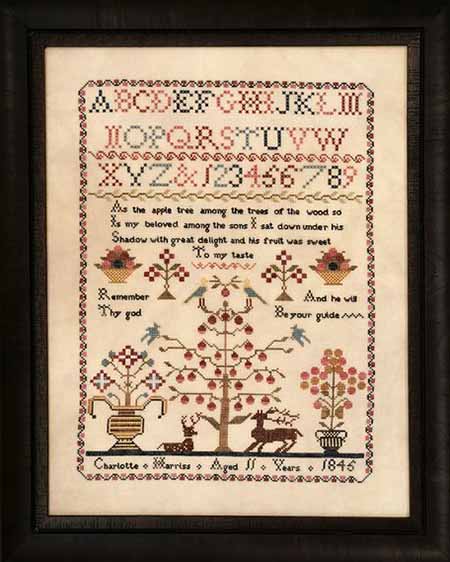 ABCDEFGHIJKLM
NOPQRSTUVW
XYZ&123456789
As the apple tree among the trees of the wood so
Is my beloved among the sons I sat down under his
Shadow with great delight and his fruit was sweet
To my taste
Remember
Thy god
And he will
Be your guide
Charlotte Harriss Aged 11 Years 1845